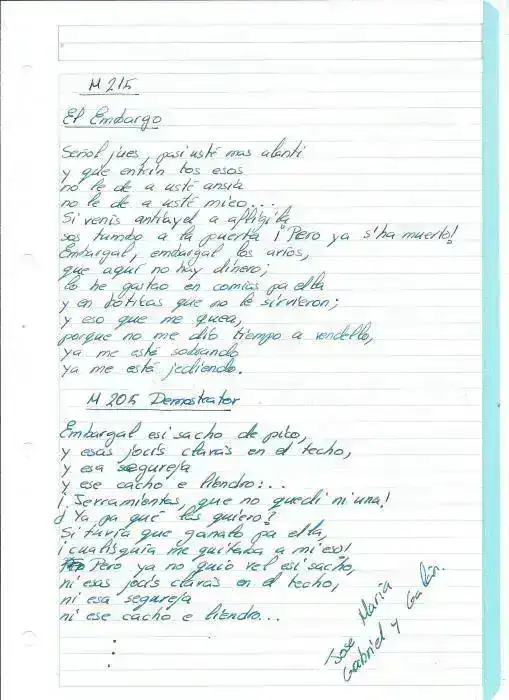 M 215
El Embargo
Señol jues, pasi usté mas alanti
y que entrin tos esos
no le de a usté ansia
no le de a usté mieo...
Si venís antiayel a afligila
sos tumbo a la puerta ¡Pero ya s'ha muerto!
Embargal, embargal los avíos,
que aquí no hay dinero;
lo he gastao en comías pa ella
y en boticas que no le sirvieron;
y eso que me quea,
porque no me dió tiempo a vendello,
ya me está sobrando
ya me está jediendo.
M 205 Demostrator
Embargal esi sacho de pico,
y esas jocis clavás en el techo,
y esa segureja
y ese cacho e liendro...
¡Jerramientas, que no quedi ni una!
¿Ya pa qué las quiero?
Si tuvía que ganalo pa ella,
¡cualisquía me quitaba a mi eso!
Pero ya no quio vel esi sacho,
ni esas jocis clavás en el techo,
ni esa segureja
ni ese cacho e liendro...
Jose María
Gabriel y Galán.